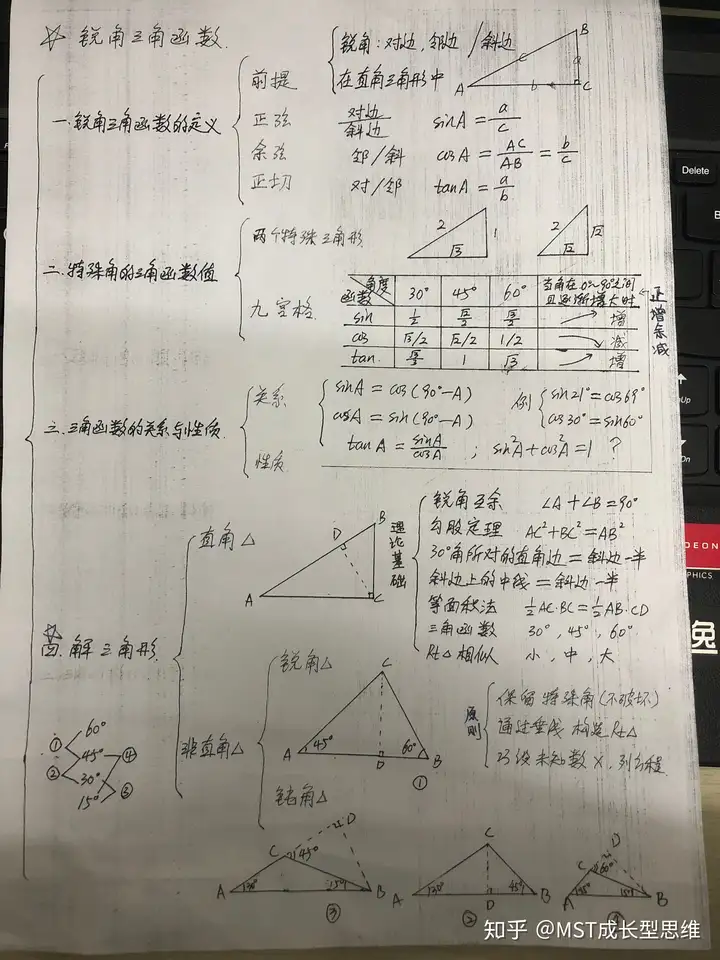 ☆ 锐角三角函数.
一.锐角三角函数的定义
前提
锐角:对边,邻边/斜边
在直角三角形中
A B C a b c
正弦 对边/斜边 sinA = a/c
余弦 邻/斜 cosA = AC/AB = b/c
正切 对/邻 tanA = a/b
二.特殊角的三角函数值
两个特殊三角形
2 1 √3
2 √2 √2
九宫格
角度 函数 30° 45° 60° 当角在0~90°之间且逐渐增大时
sin 1/2 √2/2 √3/2 → 增
cos √3/2 √2/2 1/2 → 减
tan. √3/3 1 √3 → 增
正增余减
三.三角函数的关系与性质.
关系
性质
sinA = cos(90°-A)
cosA = sin(90°-A)
tanA = sinA/cosA ; sin²A+cos²A=1 ?
例 sin21°=cos69°
cos30°=sin60°
☆
四.解三角形.
直角△
A B C D
理论基础
锐角互余 ∠A+∠B=90°
勾股定理 AC²+BC²=AB²
30°角所对的直角边=斜边一半
斜边上的中线=斜边一半
等面积法 ½AC·BC=½AB·CD
三角函数 30°,45°,60°
Rt△相似 小,中,大
非直角△
锐角△
A 45° C D 60° B ①
钝角△
原则
保留特殊角(不破坏)
通过垂线 构造Rt△
巧设未知数x,列方程
① 60°
45° ④
② 30°
15° ③
A 30° C 45° D 15° B ③
A 30° C D 45° B ②
A 45° C 60° D 15° B
Delete
知乎 @MST成长型思维